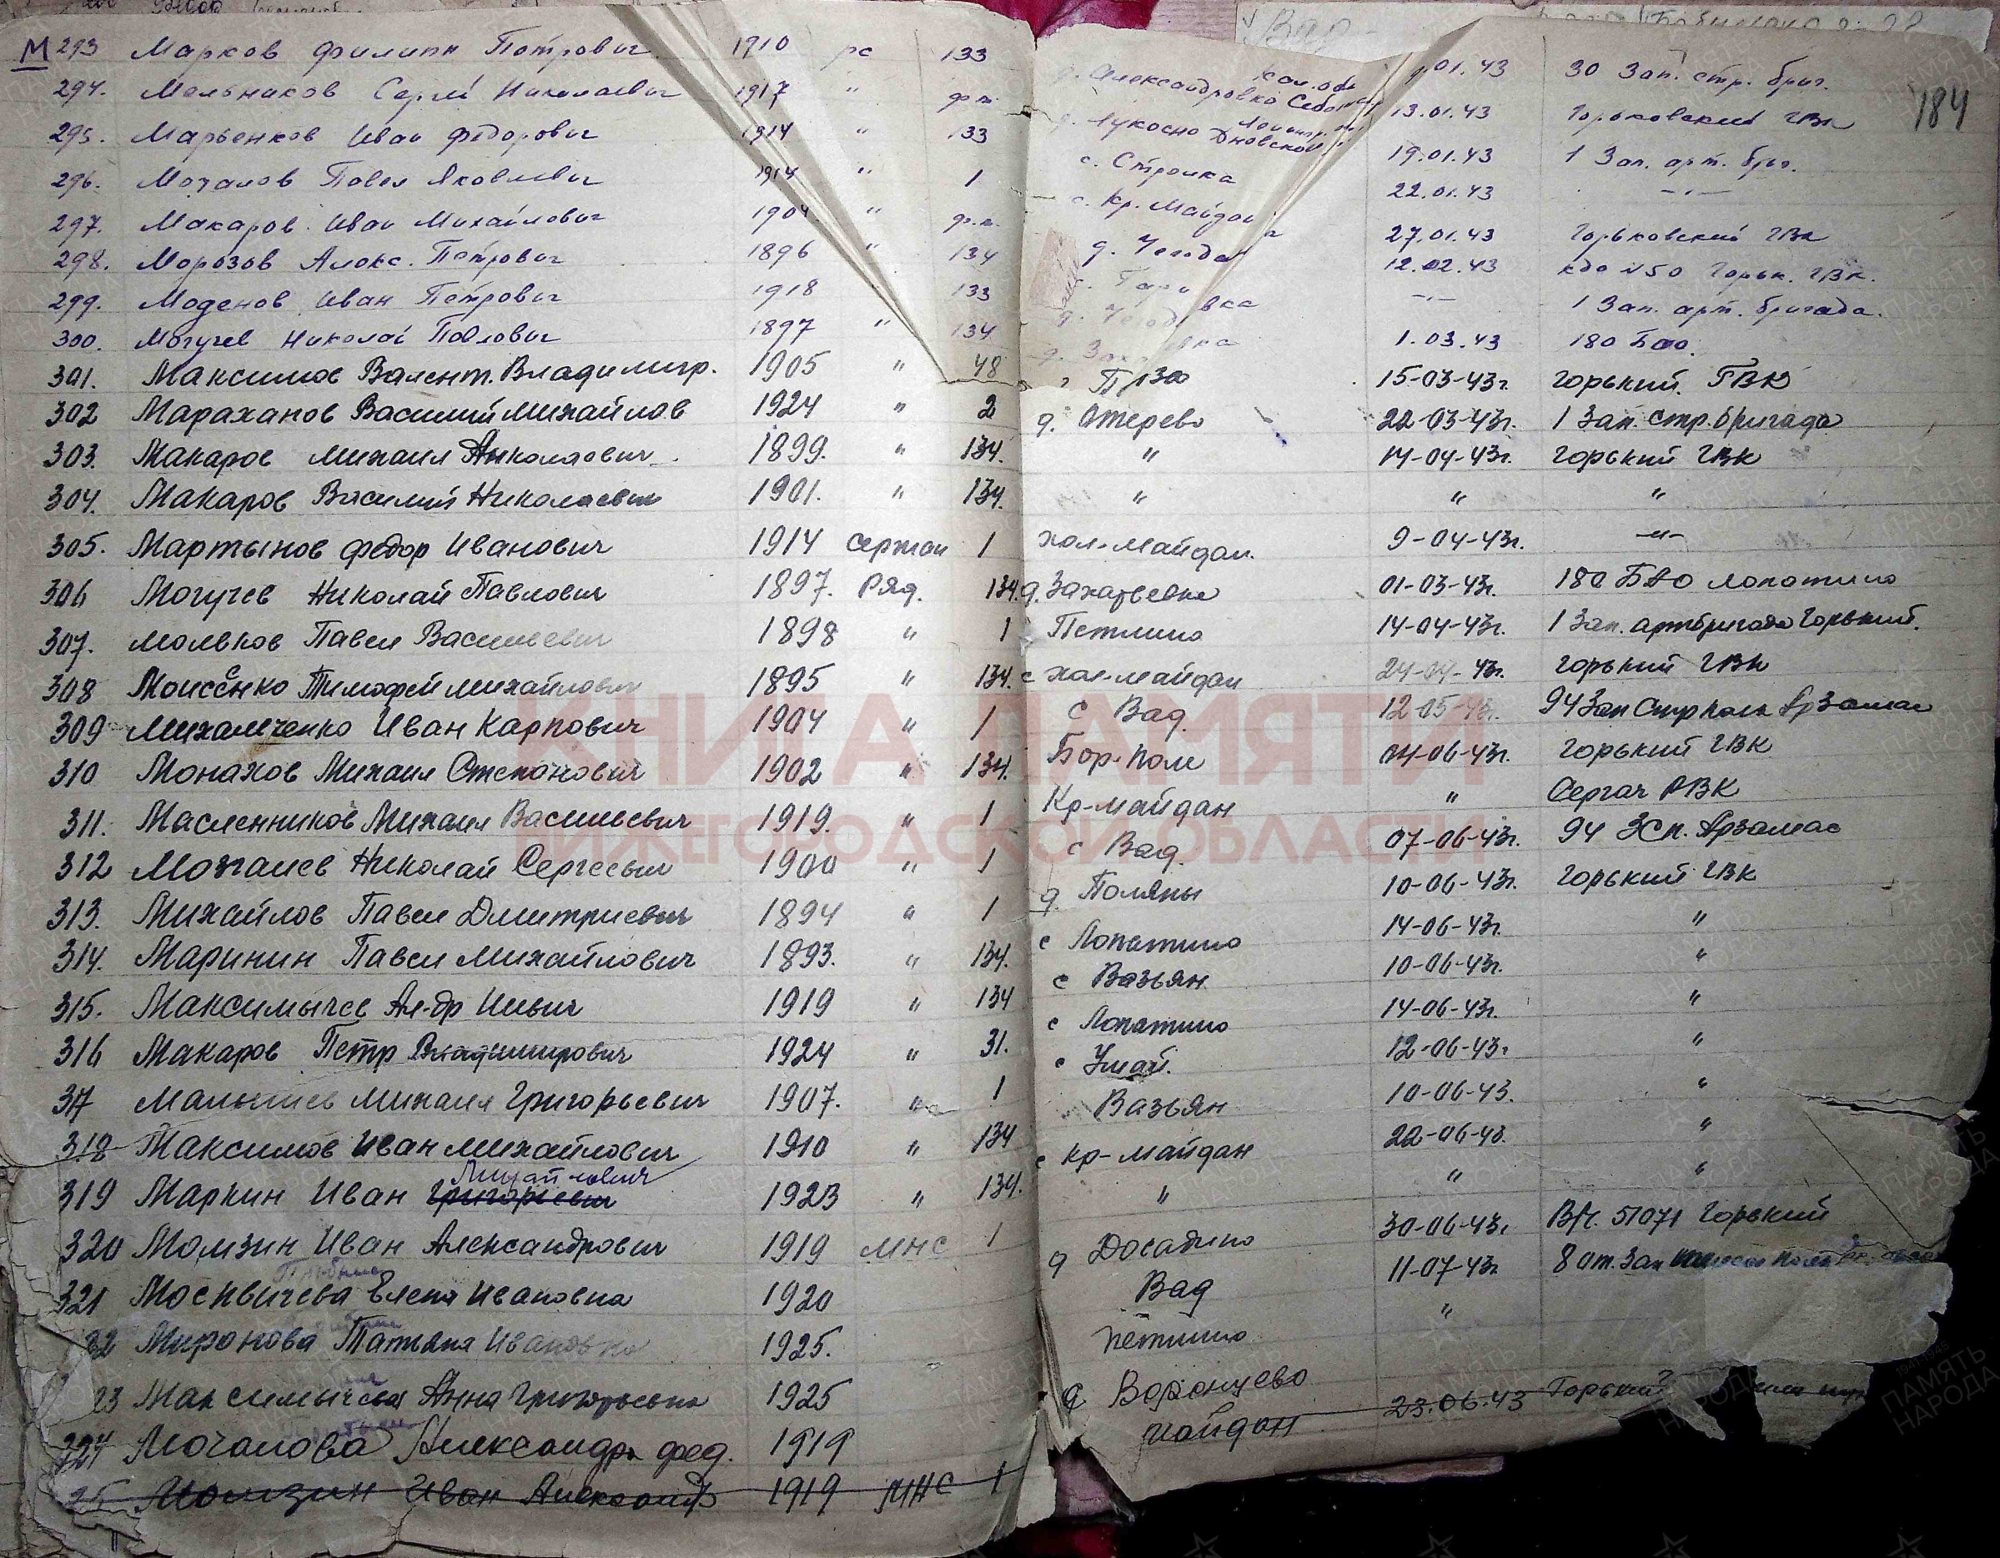 М 293 Марков Филипп Петрович 1910 рс 133 01.43 30 Зап. стр. бриг.
184
294. Мельников Сергей Николаевич 1917 " ф.т. д. Александровка 13.01.43 Горьковский ГВК
295. Марьенков Иван Федорович 1914 " 133 д. Лукосно Дновской 19.01.43 1 Зап. арт. бриг.
296. Мочалов Павел Яковлевич 1914 " 1 с. Строчка 22.01.43 -"-
297. Макаров Иван Михайлович 1904 " ф.т. с. Кр. Майдан 27.01.43 Горьковский ГВК
298. Морозов Алекс. Петрович 1896 " 134 12.02.43 кдо №50 Горьк. ГВК.
299. Моденов Иван Петрович 1918 133 -"- 1 Зап. арт. бригада.
300. Могучев Николай Павлович 1897 " 134 1.03.43 180 Бао.
301. Максимов Валент. Владимир. 1905 " 48 15-03-43г. Горький ГВК
302 Мараханов Василий Михайлов 1924 " 2 д. Отерево 22-03-43г. 1 Зап. стр. бригада
303. Макаров Михаил Николаевич 1899. " 134. " 14-04-43г. Горький ГВК
304. Макаров Василий Николаевич 1901. " 134. " " "
305. Мартынов Федор Иванович 1914 сержан 1 Хол-Майдан. 9-04-43г. -"-
306 Могучев Николай Павлович 1897. Ряд. 134. д. Захарьевка 01-03-43г. 180 БАО Лопатино
307. Мольков Павел Васильевич 1898 " 1 Петлино 14-04-43г. 1 Зап. артбригада Горький.
308 Моисеенко Тимофей Михайлович 1895 " 134. с Хол-Майдан 24-04-43г. Горький ГВК
309 Михальченко Иван Карпович 1904 " 1 с Вад. 12-05-43г. 94 Зап Стр полк Арзамас
310 Монахов Михаил Степанович 1902 " 134. Бор-Поле 04-06-43г. Горький ГВК
311. Масленников Михаил Васильевич 1919. " 1 Кр-Майдан " Сергач РВК
312 Можалев Николай Сергеевич 1900 " 1 с Вад. 07-06-43г. 94 ЗСП. Арзамас
313. Михайлов Павел Дмитриевич 1894 " 1 д. Поляны 10-06-43г. Горький ГВК
314. Маринин Павел Михайлович 1893. " 134. с Лопатино 14-06-43г. "
315. Максимычев Ал-др Ильич 1919 " 134 с Вазьян 10-06-43г. "
316 Макаров Петр Владимирович 1924 " 31. с Лопатино 14-06-43г. "
317 Малышев Михаил Григорьевич 1907. " 1 с Умай. 12-06-43г "
318 Максимов Иван Михайлович 1910 " 134 Вазьян 10-06-43. "
Михайлович
319 Маркин Иван Григорьевич 1923 " 134. с Кр-Майдан 22-06-43. "
320 Момзин Иван Александрович 1919 МНС 1 " " "
321 Москвичева Елена Ивановна 1920 д Досадино 30-06-43г. В/ч. 51071 Горький
22 Миронова Татьяна Ивановна 1925. Вад 11-07-43г 8 от. Зап
Петлино "
23 Максимычева Анна Григорьевна 1925 д Воронцево
324 Мочалова Александра Фед. 1919 Майдан 23.06.43 Горький
25 Момзин Иван Александр 1919 МНС 1
КНИГА ПАМЯТИ
НИЖЕГОРОДСКОЙ ОБЛАСТИ
ПАМЯТЬ НАРОДА